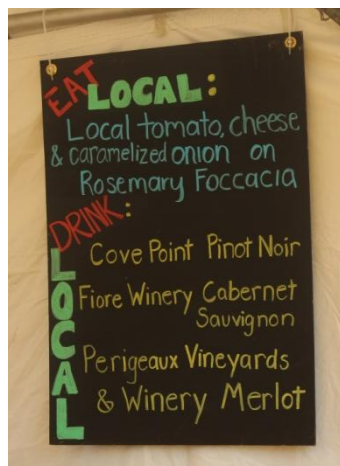 EAT LOCAL:
Local tomato, cheese
& caramelized onion on
Rosemary Foccacia
DRINK:
LOCAL
Cove Point Pinot Noir
Fiore Winery Cabernet
Sauvignon
Perigeaux Vineyards
& Winery Merlot